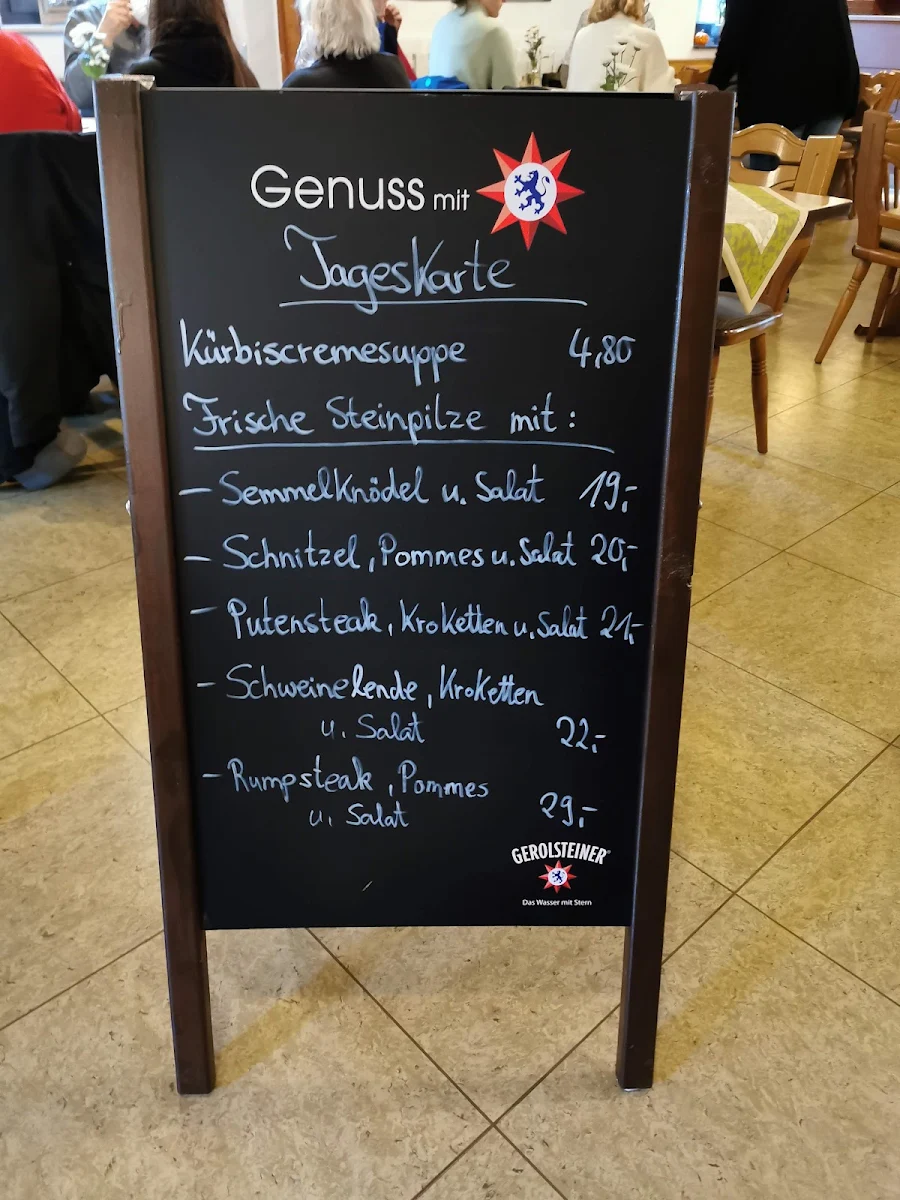 Genuss mit
Tageskarte
Kürbiscremesuppe 4,80
Frische Steinpilze mit :
- Semmelknödel u. Salat 19,-
- Schnitzel, Pommes u. Salat 20,-
- Putensteak, Kroketten u. Salat 21,-
- Schweinelende, Kroketten
u. Salat 22,-
- Rumpsteak, Pommes
u. Salat 29,-
GEROLSTEINER®
Das Wasser mit Stern